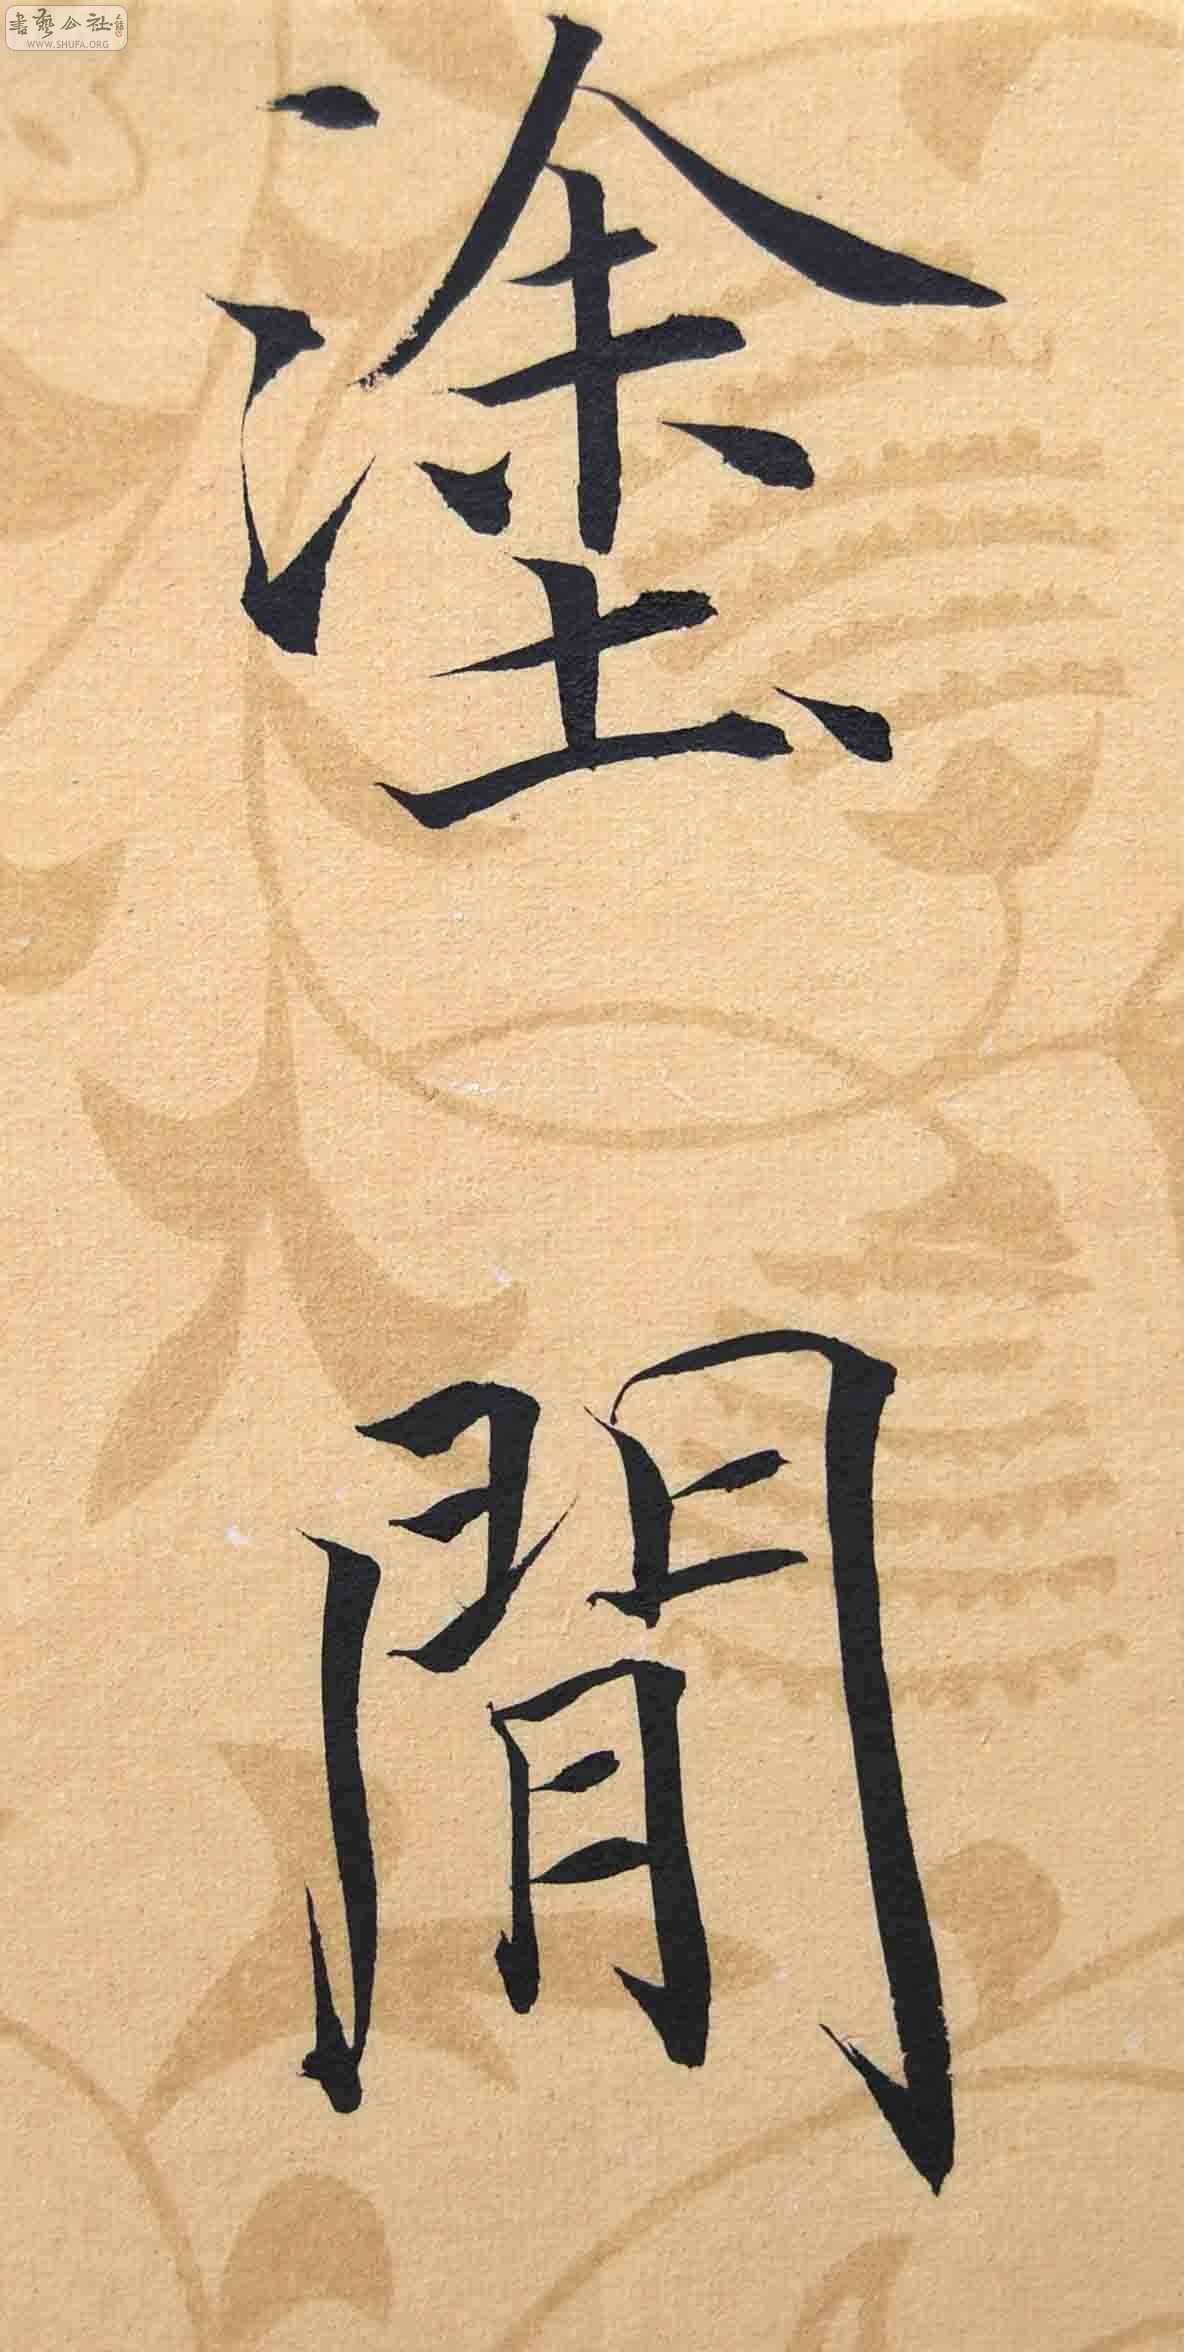 書藝公社
WWW.SHUFA.ORG
塗
閒